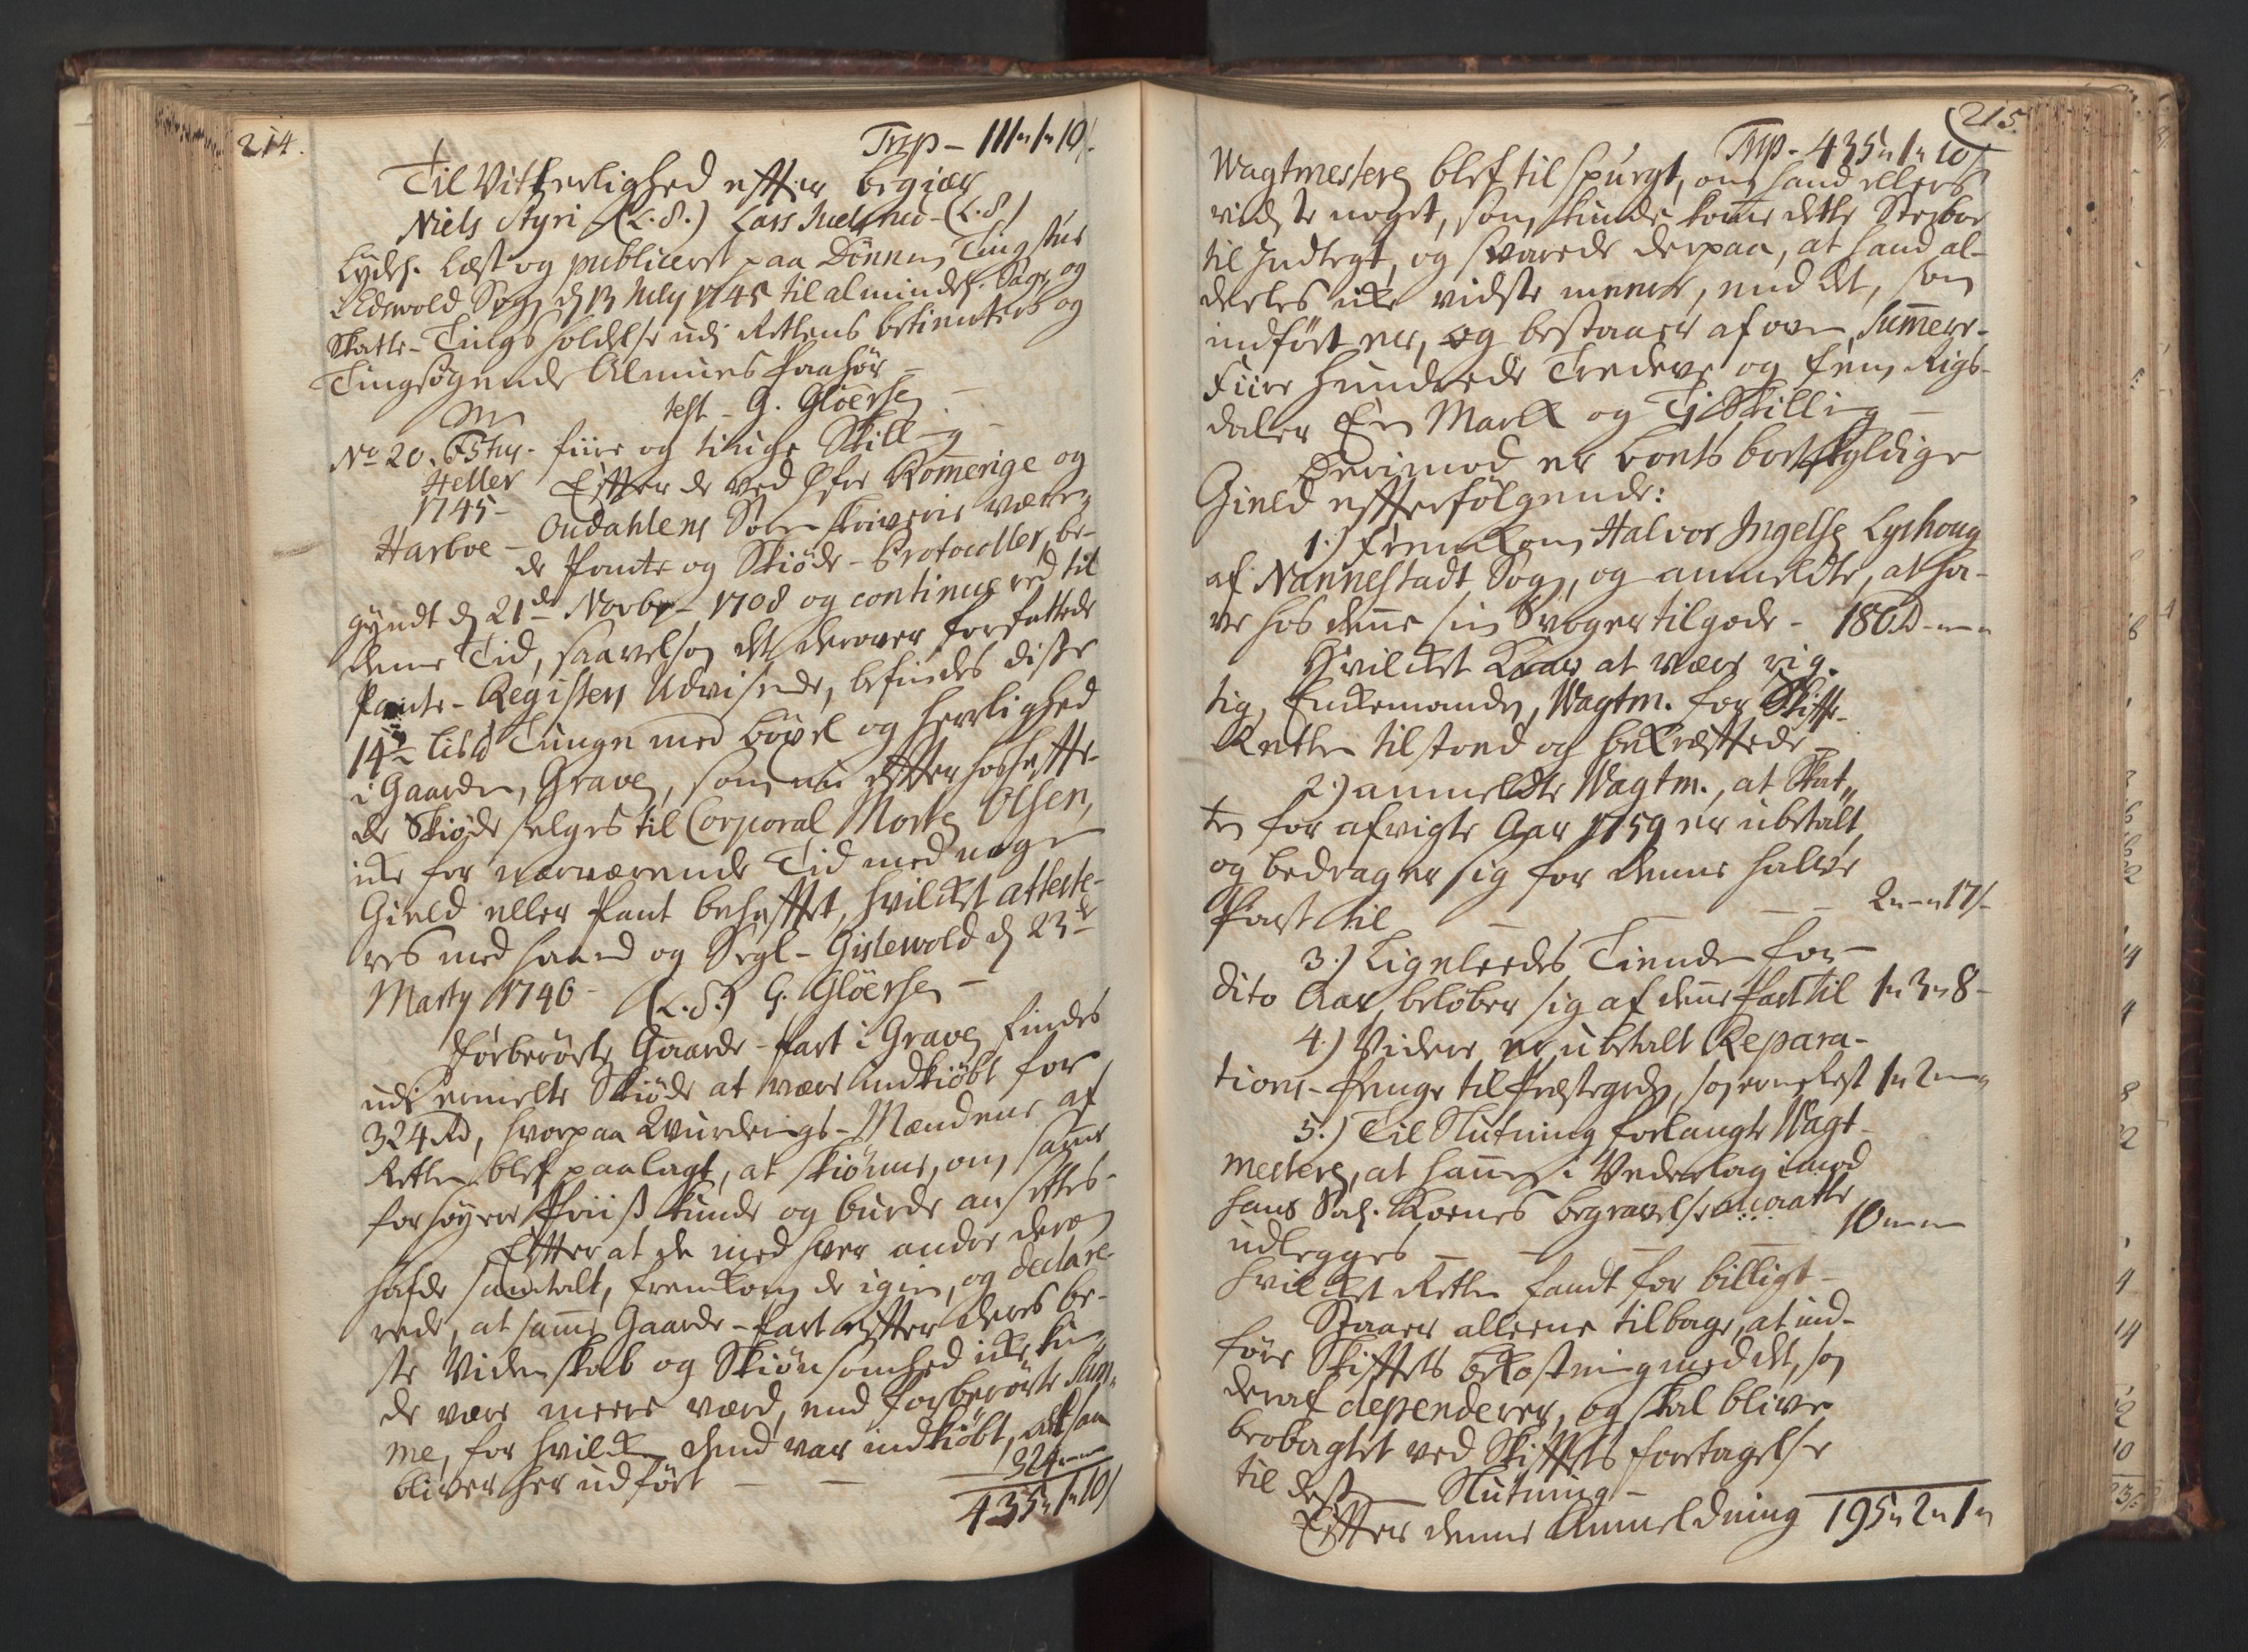 214.
Trsp – 111„1„10/.
Til Vitterlighed effter begiær
Niels Styri (L.S.) Lars Juelsrud – (L.S.)
Lydes. Læst og publiceret paa Dønnum Tingstue
i Edsvold Sogn d 13 July 1745 til almindel. Sage og
Skatte-Tings holdelse udi Rettens betienteres og
Tingsøgende Almues Paahør –
test – G. Gløersen –
No 20. fiire og tiuge Skilling –
Heller
1745 –
Harboe –
Effter de ved Øfre Romerige og
Oudahlens Sorenskriverie værren
de Pante og Skiøde-Protocoller, be-
gyndt d 21de Novbr 1708 og continuered til
denne Tid, saavelsom det derover forfattede
Pante-Register Udvisende, befindes disse
14½ Lisd Tunge med bøxel og herlighed
i Gaarden, Graven, som nu effter hosheffte-
de Skiøde selges til Corporal Morten Olsen,
icke for nærværende Tid med nogen
Gield eller Pant behefftet, hvilket atteste-
res med haand og Segl – Gislewold d 23de
Marty 1746 – (L.S.) G. Gløersen –
Førberørte Gaarde-Part i Graven findes
udi ermelte Skiøde at være indkiøbt for
324 Rd, hvorpaa Wurderings-Mændene af
Retten blef paalagt, at skiønne, om samme
for høyere Priis kunde og burde ansettes –
Effter at de med hver andre derom
hafde samtalt, fremkom de igien, og declare-
rede, at samme Gaarde-Part effter deres be-
ste Videnskab og Skiønsomhed icke kun
de være meere værd, end forberørte Sum-
me, for hvilken dend var indkiøbt, altsaa
bliver her udført – – 324„–„–
435„1„10/
215.
Trsp – 435„1„10/
Wagtmesteren blef tilspurgt, om hand ellers
vidste noget, som kunde komme dette Sterboe
til Indtegt, og svarede derpaa, at hand al-
deeles icke vidste meere, end det, som
indført er, og bestaaer af oven Summere-
Fiire Hundrede Tredeve og fem Rigs-
daler Een Marck og Ti Skilling –
Derimod er Boets bortskyldige
Gield effterfølgende:
1.) fremkom Halvor Ingelsen Lyshoug
af Nannestadt Sogn, og anmeldte, at ha-
ve hos denne sin Svoger tilgode – 180 Rd –„–„
Hvilket Krav at være rig-
tig, Enkemanden, Wagtm. for Skiffte-
Retten tilstoed og bekræfftede –
2.) anmeldte Wagtm., at Skat„
ten for afvigte Aar 1759 er ubetalt,
og bedrager sig for denne halve
Part til – – – 2„–„17/–
3.) Ligeleedes Tienden for –
dito Aar, beløber sig af denne Part til 1„3„8 –
4.) Videre er ubetalt Repara-
tions-Penge til Præstegrden, som er en Rest 1„2„–„
5.) Til Slutning forlangte Wagt-
mesteren, at hannem i Vederlag imod
hans Sal. Kones begravelse maatte
udlegges – – – 10„–„–
hvilket Retten fandt for billigt –
Staaer alleene tilbage, at ind-
føre Skifftets bekostning med det, som
deraf dependerer, og skal blive
beobagtet ved Skifftets foretagelse
til dets Slutning –
Effter denne Anmeldning 195„2„1„